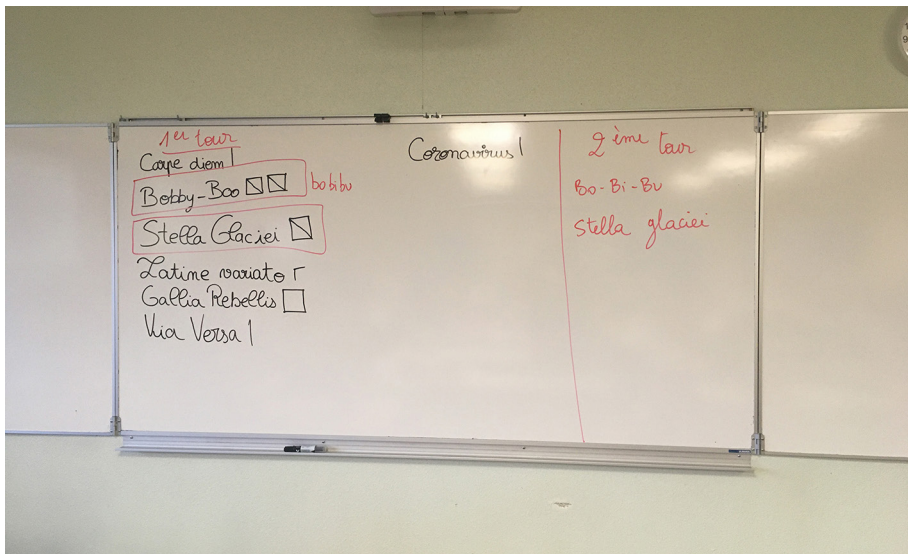 1er tour
Carpe diem
Bobby-Boo
bobibu
Stella Glaciei
Latine variato
Gallia Rebellis
Via Versa
Coronavirus
2ème tour
Bo-Bi-Bu
Stella glaciei